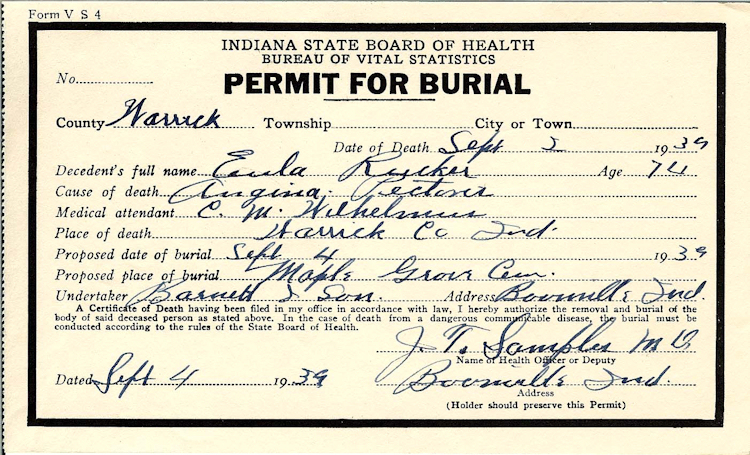 Form V S 4
INDIANA STATE BOARD OF HEALTH
BUREAU OF VITAL STATISTICS
No.
PERMIT FOR BURIAL
County Warrick Township City or Town
Date of Death Sept 2 1939
Decedent's full name Eula Rucker Age 74
Cause of death Angina Pectoris
Medical attendant C. M. Wilhelmus
Place of death Warrick Co Ind.
Proposed date of burial Sept 4 1939
Proposed place of burial Maple Grove Cem.
Undertaker Barnett & Son. Address Boonville Ind.
A Certificate of Death having been filed in my office in accordance with law, I hereby authorize the removal and burial of the
body of said deceased person as stated above. In the case of death from a dangerous communicable disease, the burial must be
conducted according to the rules of the State Board of Health.
J. T. Samples M D
Name of Health Officer or Deputy
Dated Sept 4 1939 Boonville Ind.
Address
(Holder should preserve this Permit)